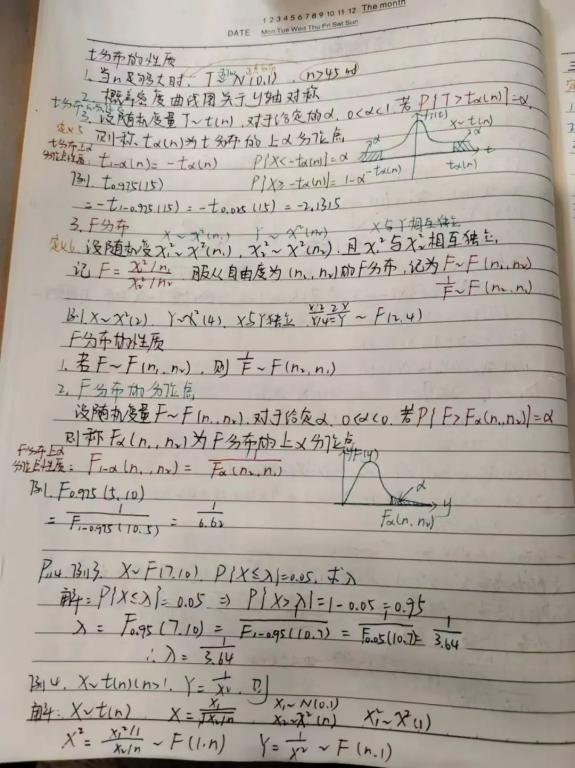 1 2 3 4 5 6 7 8 9 10 11 12 The month
DATE Mon Tue Wed Thu Fri Sat Sun
t分布的性质
1. 当n足够大时, T N(0,1). n>45时
2. 概率密度曲线图关于y轴对称
3. 设随机变量T~t(n), 对于给定的α, 0<α<1, 若P{T>tα(n)}=α,
定义5 则称tα(n)为t分布的上α分位点
t分布上α分位点性质: t₁₋α(n) = -tα(n) P{X<-tα(n)}=α
例. t₀.₉₇₅(15) P{X>-tα(n)}=1-α
= -t₁₋₀.₉₇₅(15) = -t₀.₀₂₅(15) = -2.1315
f(t) X~t(n) α α -tα(n) tα(n) t
3. F分布 X~χ²(n₁) Y~χ²(n₂) X与Y相互独立
定义6 设随机变χ₁²~χ²(n₁), χ₂²~χ²(n₂), 且χ₁²与χ₂²相互独立,
记F = (χ₁²/n₁)/(χ₂²/n₂) 服从自由度为(n₁,n₂)的F分布, 记为F~F(n₁,n₂)
1/F~F(n₂,n₁)
例 X~χ²(2), Y~χ²(4), X与Y独立 (X/2)/(Y/4)=2X/Y ~ F(2,4)
F分布的性质
1. 若F~F(n₁,n₂), 则 1/F ~ F(n₂,n₁)
2. F分布的分位点
设随机变量F~F(n₁,n₂), 对于给定α, 0<α<0, 若P{F>Fα(n₁,n₂)}=α
则称Fα(n₁,n₂)为F分布的上α分位点
F分布上α分位点性质: F₁₋α(n₁,n₂) = 1/Fα(n₂,n₁)
f(y) α Fα(n₁,n₂) y
例. F₀.₉₇₅(5,10)
= 1/F₁₋₀.₉₇₅(10,5) = 1/6.62
P₁₁₄ 例3. X~F(7,10), P{X≤λ}=0.05, 求λ
解: P{X≤λ}=0.05 ⇒ P{X>λ}=1-0.05=0.95
λ = F₀.₉₅(7,10) = 1/F₁₋₀.₉₅(10,7) = 1/F₀.₀₅(10,7) = 1/3.64
∴λ = 1/3.64
例4. X~t(n)(n>1, Y=1/X², 则
解: X~t(n) X = X₁/√(X₂/n) X₁~N(0,1) X₂~χ²(n) X₁²~χ²(1)
X² = (X₁²/1)/(X₂/n) ~ F(1,n) Y = 1/X² ~ F(n,1)